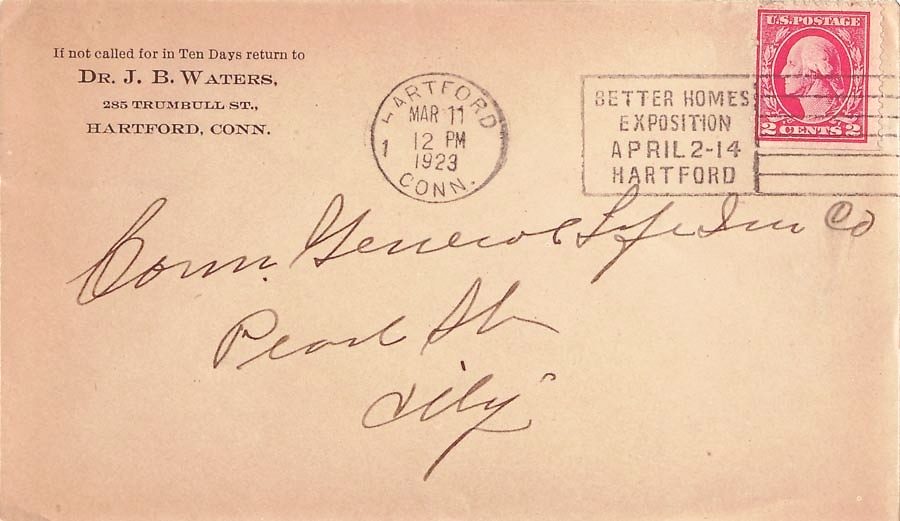 If not called for in Ten Days return to
DR. J. B. WATERS,
285 TRUMBULL ST.,
HARTFORD, CONN.
HARTFORD
MAR 11
12 PM
1923
1
CONN.
BETTER HOMES
EXPOSITION
APRIL 2-14
HARTFORD
U.S. POSTAGE
2 CENTS 2
Conn. General Life Ins Co
Pearl St
City